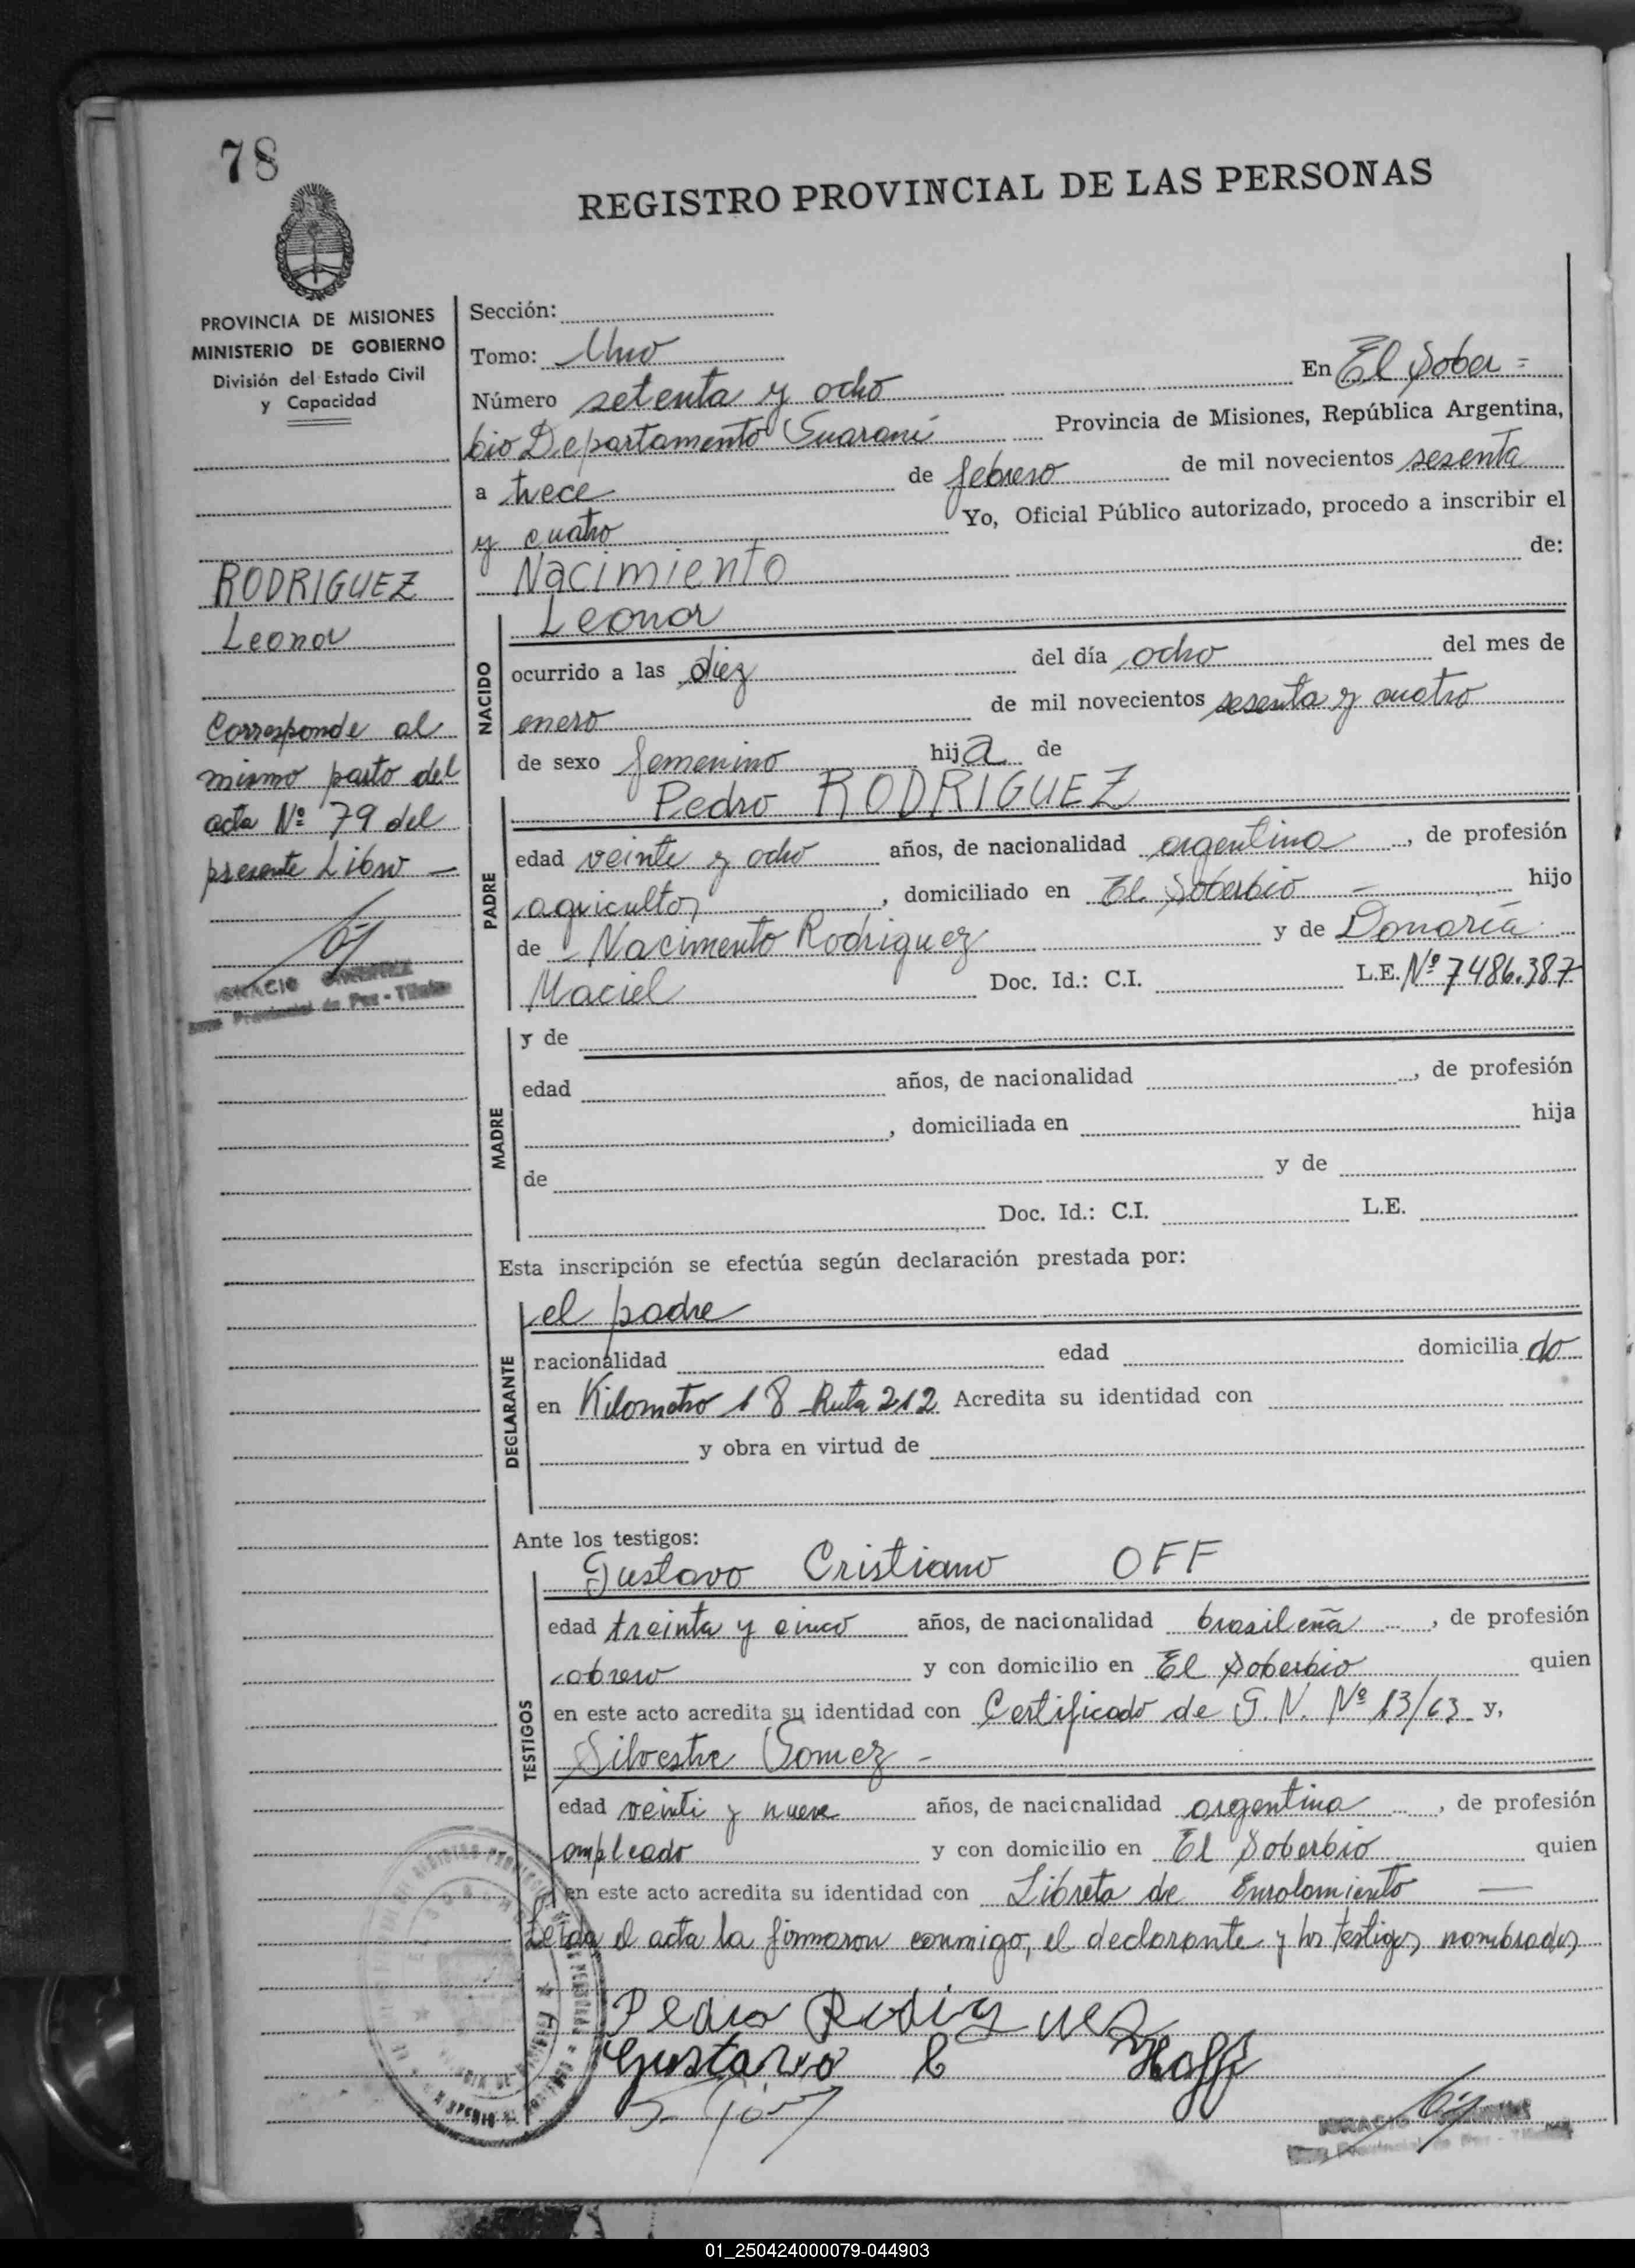 78
REGISTRO PROVINCIAL DE LAS PERSONAS
PROVINCIA DE MISIONES
MINISTERIO DE GOBIERNO
División del Estado Civil
y Capacidad
RODRIGUEZ
Leonor
Corresponde al
mismo parto del
acta Nº 79 del
presente Libro —
IGNACIO
Provincial de Paz - Titular
Sección:
Tomo: Uno
Número setenta y ocho En El Sober =
bio Departamento Guaraní Provincia de Misiones, República Argentina,
a trece de febrero de mil novecientos sesenta
y cuatro Yo, Oficial Público autorizado, procedo a inscribir el
Nacimiento de:
NACIDO
Leonor
ocurrido a las diez del día ocho del mes de
enero de mil novecientos sesenta y cuatro
de sexo femenino hija de
PADRE
Pedro RODRIGUEZ
edad veinte y ocho años, de nacionalidad argentina, de profesión
agricultor, domiciliado en El Soberbio - hijo
de Nacimento Rodriguez y de Donaria
Maciel Doc. Id.: C.I. L.E. Nº 7486.387
MADRE
y de
edad años, de nacionalidad , de profesión
, domiciliada en hija
de y de
Doc. Id.: C.I. L.E.
Esta inscripción se efectúa según declaración prestada por:
DECLARANTE
el padre
nacionalidad edad domicilia do
en Kilometro 18 Ruta 212 Acredita su identidad con
y obra en virtud de
Ante los testigos:
TESTIGOS
Gustavo Cristiano OFF
edad treinta y cinco años, de nacionalidad brasileña, de profesión
obrero y con domicilio en El Soberbio quien
en este acto acredita su identidad con Certificado de G. N. Nº 13/63 y,
Silvestre Gomez -
edad veinti y nueve años, de nacionalidad argentina, de profesión
empleado y con domicilio en El Soberbio quien
en este acto acredita su identidad con Libreta de Enrolamiento —
Leída el acta la firmaron conmigo, el declarante y los testigos nombrados
Pedro Rodriguez
Gustavo C Hoff
IGNACIO
Provincial de Paz - Titular
01_250424000079-044903